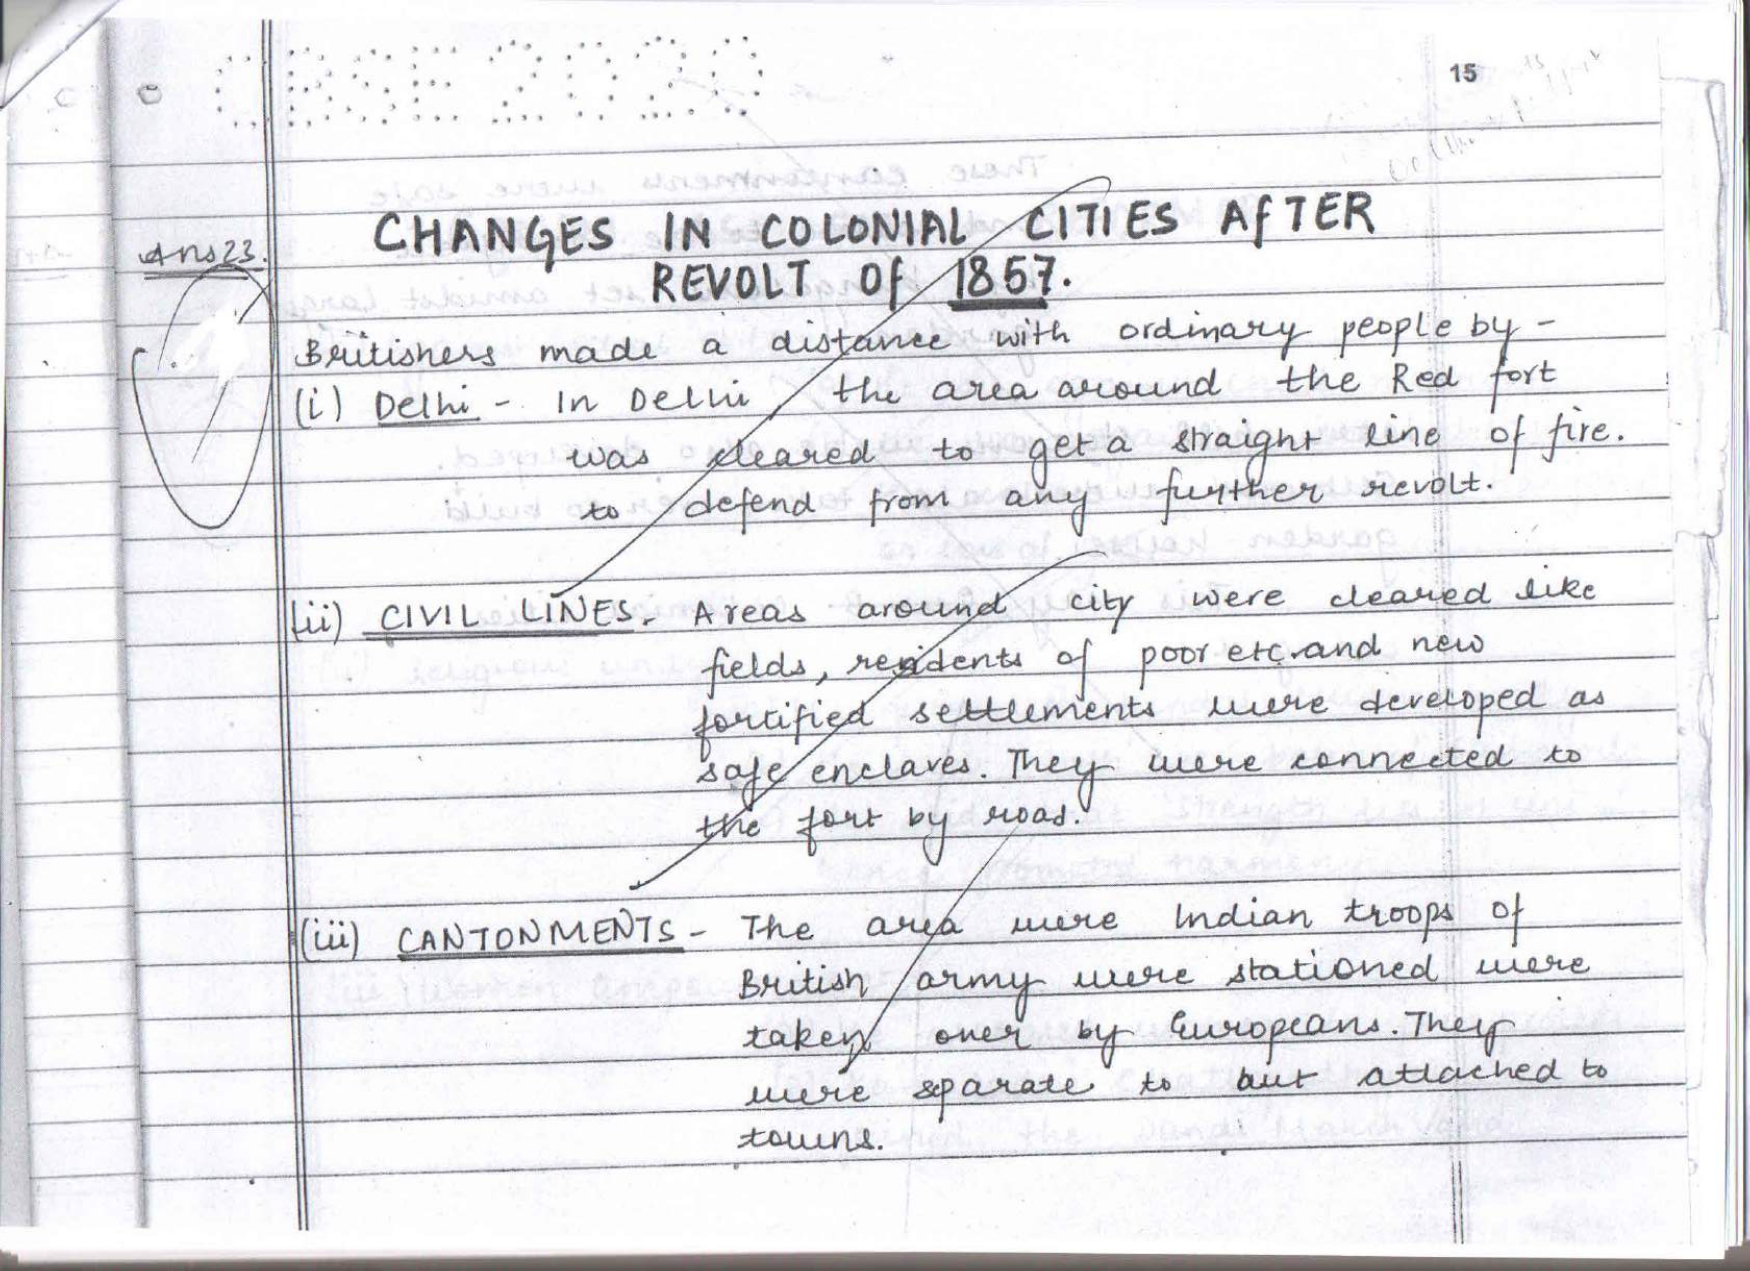 CBSE 2020
15
Ans 23.
CHANGES IN COLONIAL CITIES AFTER
REVOLT OF 1857.
Britishers made a distance with ordinary people by -
(i) Delhi - In Delhi, the area around the Red fort
was cleared to get a straight line of fire.
to defend from any further revolt.
(ii) CIVIL LINES - Areas around city were cleared like
fields, residents of poor etc. and new
fortified settlements were developed as
safe enclaves. They were connected to
the fort by road.
(iii) CANTONMENTS - The area were Indian troops of
British army were stationed were
taken over by Europeans. They
were separate to but attached to
towns.